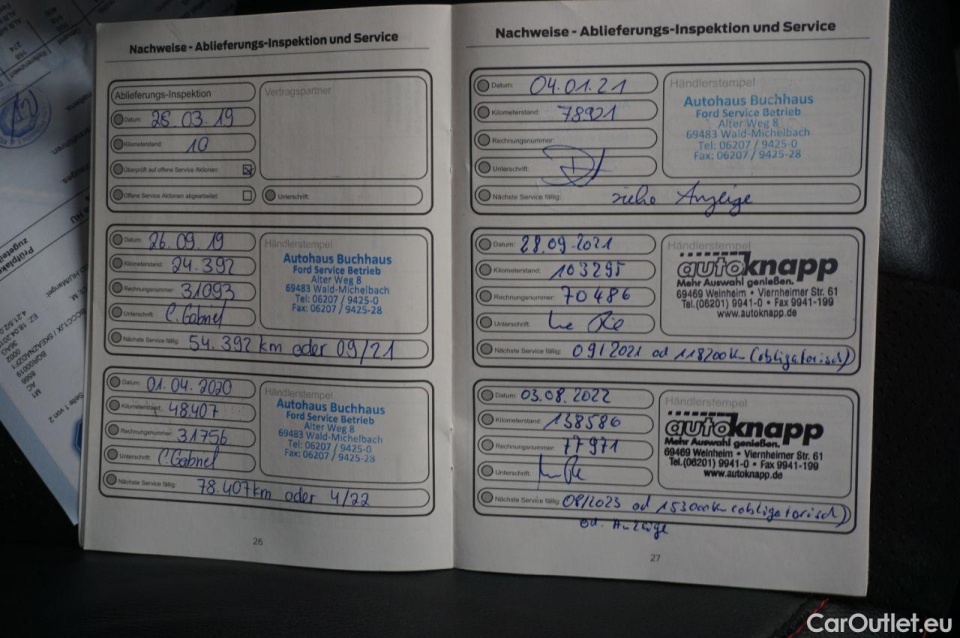 Nachweise - Ablieferungs-Inspektion und Service
Ablieferungs-Inspektion
Vertragspartner
Datum: 26.03.19
Kilometerstand: 10
Überprüft auf offene Service Aktionen:
Offene Service Aktionen abgearbeitet:
Unterschrift:
Datum: 26.09.19
Kilometerstand: 24.392
Rechnungsnummer: 31093
Unterschrift: C. Gabriel
Nächste Service fällig: 54.392 km oder 09/21
Händlerstempel
Autohaus Buchhaus
Ford Service Betrieb
Alter Weg 8
69483 Wald-Michelbach
Tel: 06207 / 9425-0
Fax: 06207 / 9425-28
Datum: 01.04.2020
Kilometerstand: 48.407
Rechnungsnummer: 31756
Unterschrift: C. Gabriel
Nächste Service fällig: 78.407km oder 4/22
Händlerstempel
Autohaus Buchhaus
Ford Service Betrieb
Alter Weg 8
69483 Wald-Michelbach
Tel: 06207 / 9425-0
Fax: 06207 / 9425-28
26
Nachweise - Ablieferungs-Inspektion und Service
Datum: 04.01.21
Kilometerstand: 78921
Rechnungsnummer:
Unterschrift:
Nächste Service fällig: siehe Anzeige
Händlerstempel
Autohaus Buchhaus
Ford Service Betrieb
Alter Weg 8
69483 Wald-Michelbach
Tel: 06207 / 9425-0
Fax: 06207 / 9425-28
Datum: 28.09.2021
Kilometerstand: 103295
Rechnungsnummer: 70486
Unterschrift:
Nächste Service fällig: 09/2021 od 118200km (obligatorisch)
Händlerstempel
autoknapp
Mehr Auswahl genießen.
69469 Weinheim • Viernheimer Str. 61
Tel.(06201) 9941-0 • Fax 9941-199
www.autoknapp.de
Datum: 03.08.2022
Kilometerstand: 138586
Rechnungsnummer: 77971
Unterschrift:
Nächste Service fällig: 08/2023 od 153000km (obligatorisch)
od. Anzeige
Händlerstempel
autoknapp
Mehr Auswahl genießen.
69469 Weinheim • Viernheimer Str. 61
Tel.(06201) 9941-0 • Fax 9941-199
www.autoknapp.de
27
CarOutlet.eu